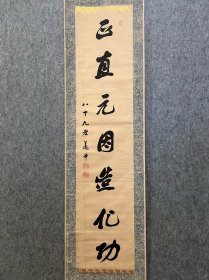 正直元因造化功
八十九老